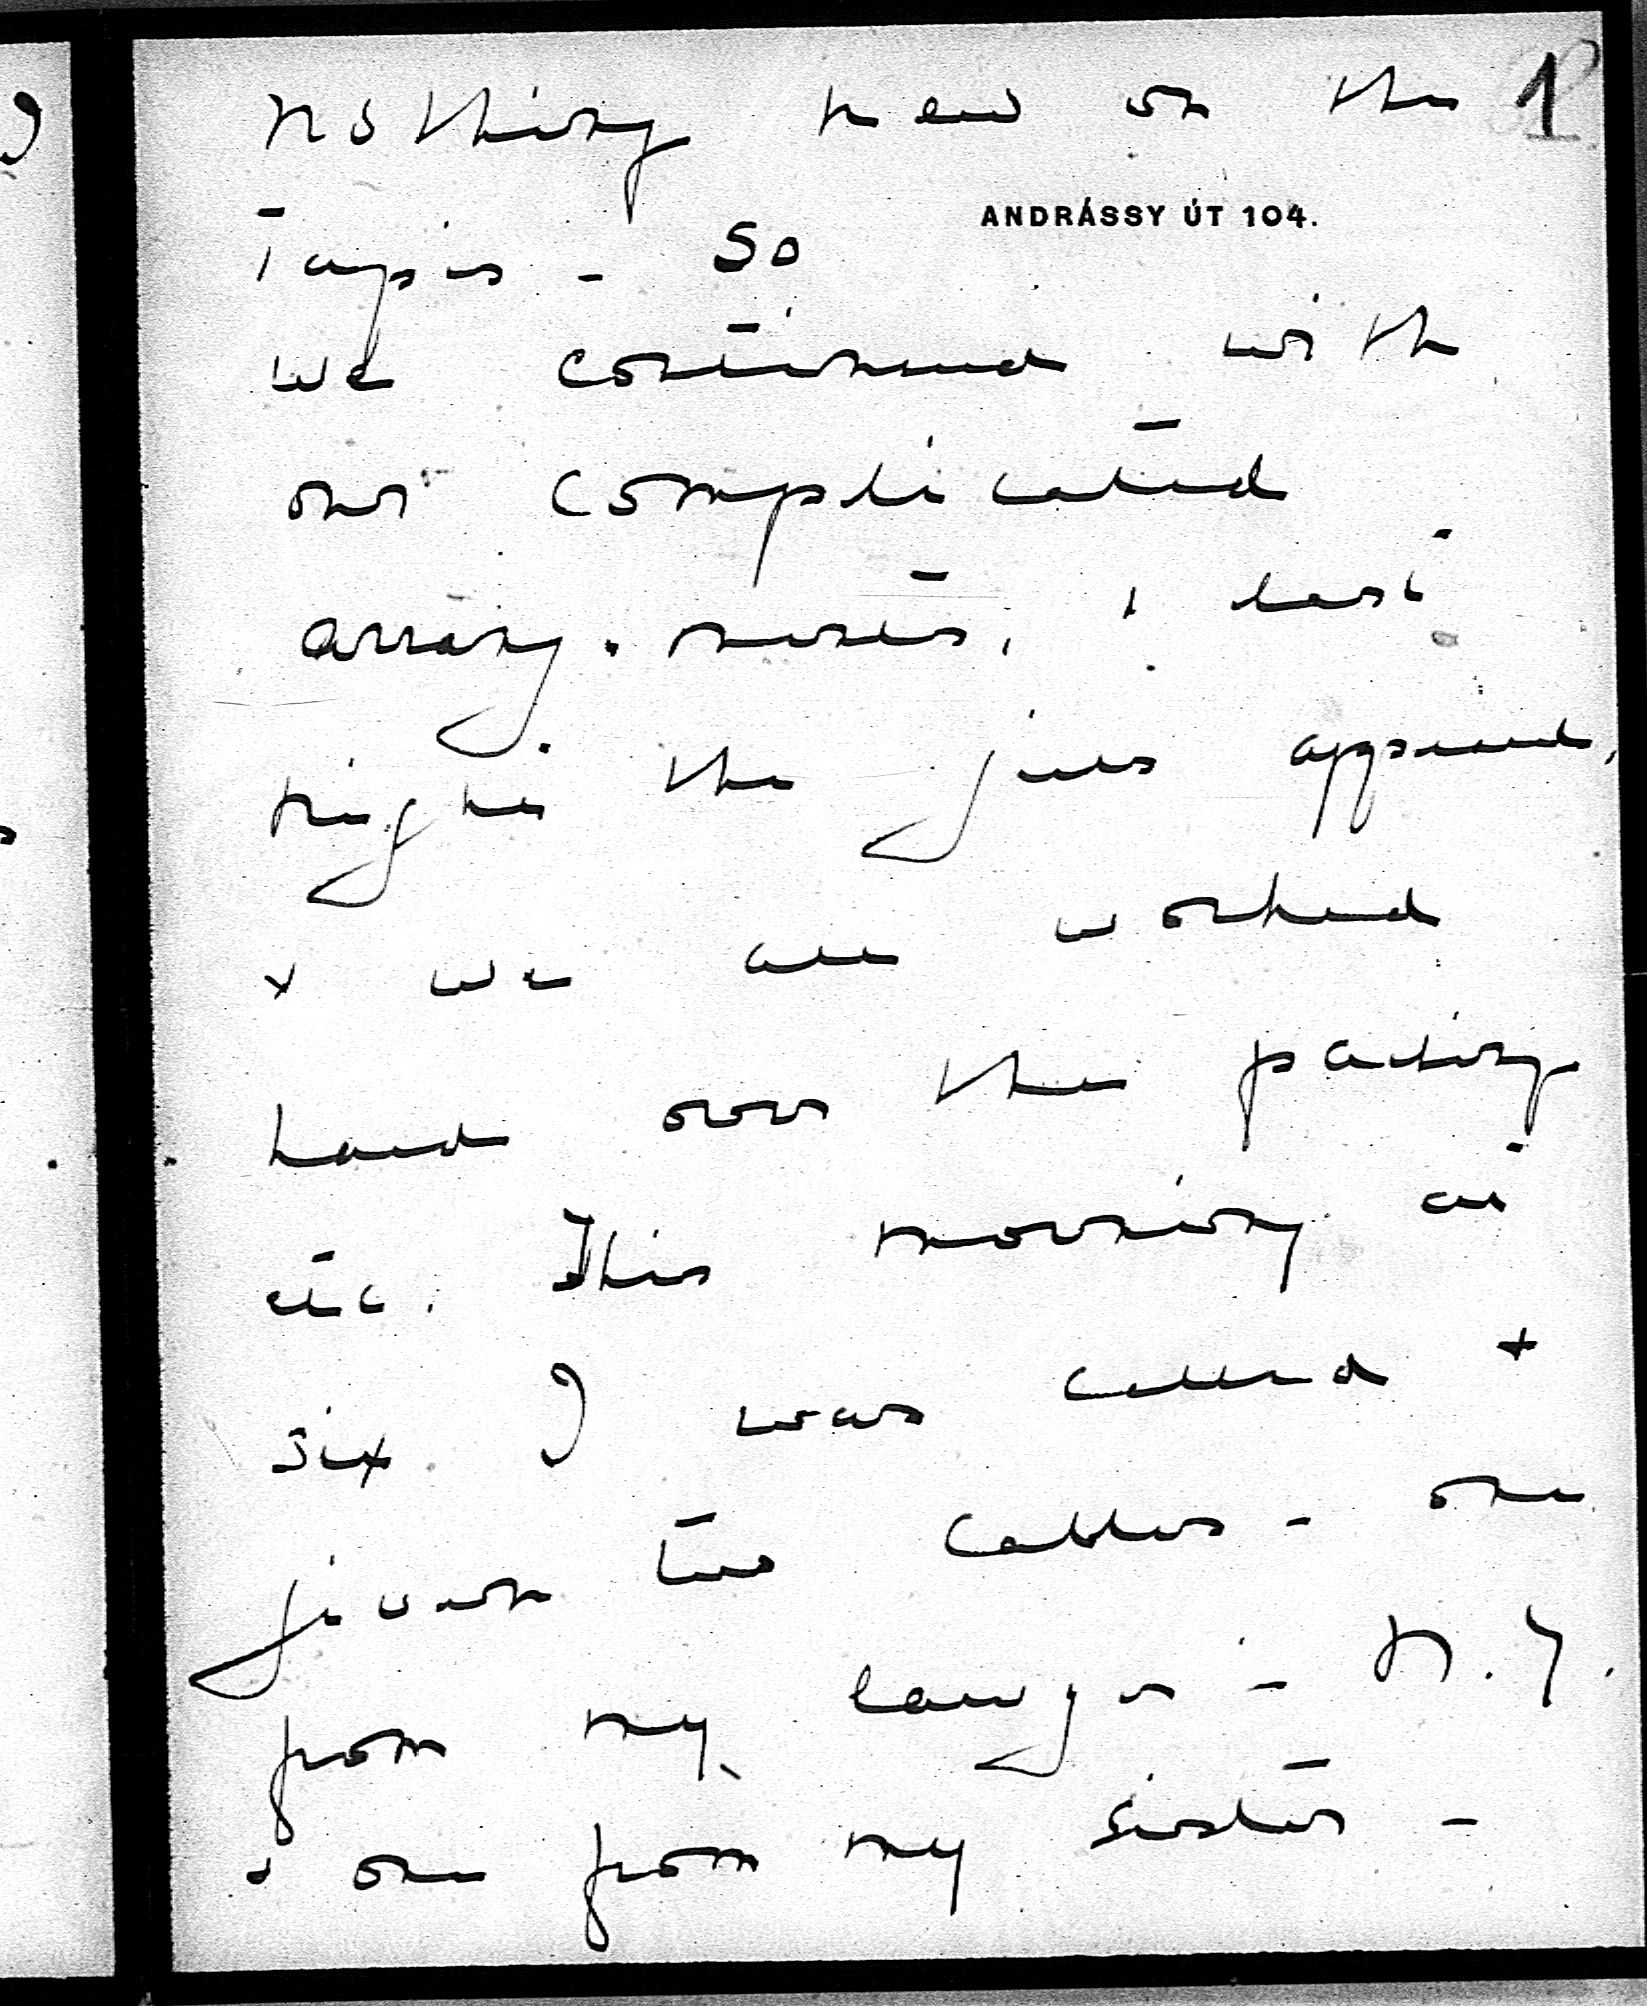 nothing new on the 1
ANDRÁSSY ÚT 104.
Tapis - So
we continued with
our complicated
arrangements, & last
night the jews appeared,
& we all worked
hard over the packing
etc. This morning at
six I was called &
given two cables - one
from my lawyer - N.Y.
& one from my sister -